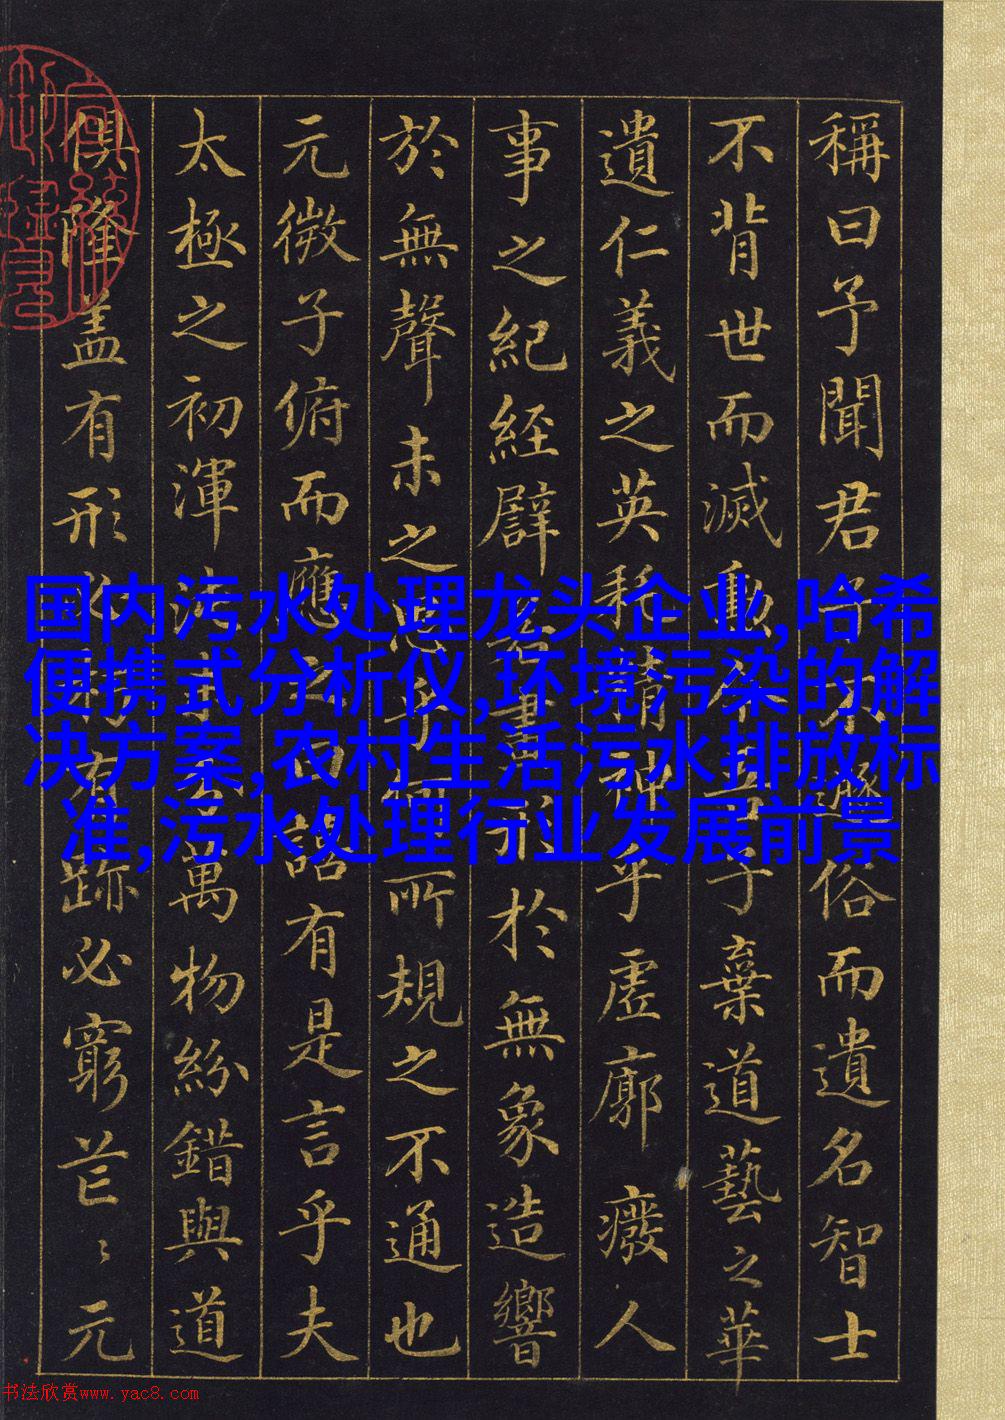 稱曰予聞君子不遯俗而遺名智士
不背世而滅勳今吾子棄道藝之華
遺仁義之英耗精神乎虛廓廢人
事之紀經譬若畫形於無象造響
於無聲未之思乎何所規之不通也
元微子俯而應之曰諮有是言乎夫
太極之初渾沌未分萬物紛錯與道
俱隆盖有形必朽有跡必窮芒〻元
国内污水处理龙头企业,哈希
便携式分析仪,环境污染的解
决方案,农村生活污水排放标
准,污水处理行业发展前景
书法欣赏www.yac8.com